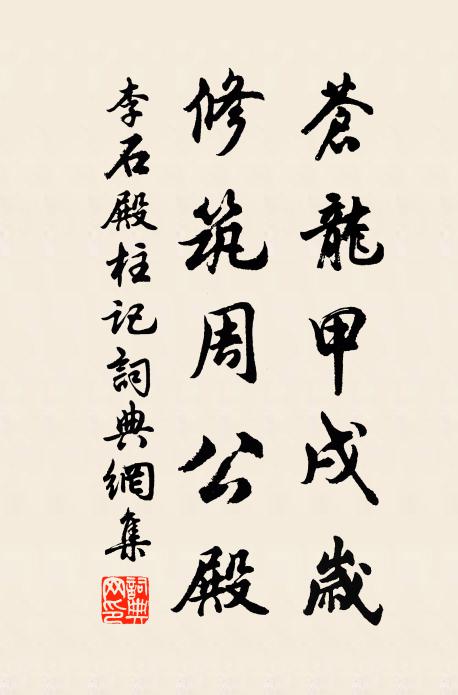 蒼龍甲戌歲
修筑周公殿
李石殿柱記詞典網集
詞典網印